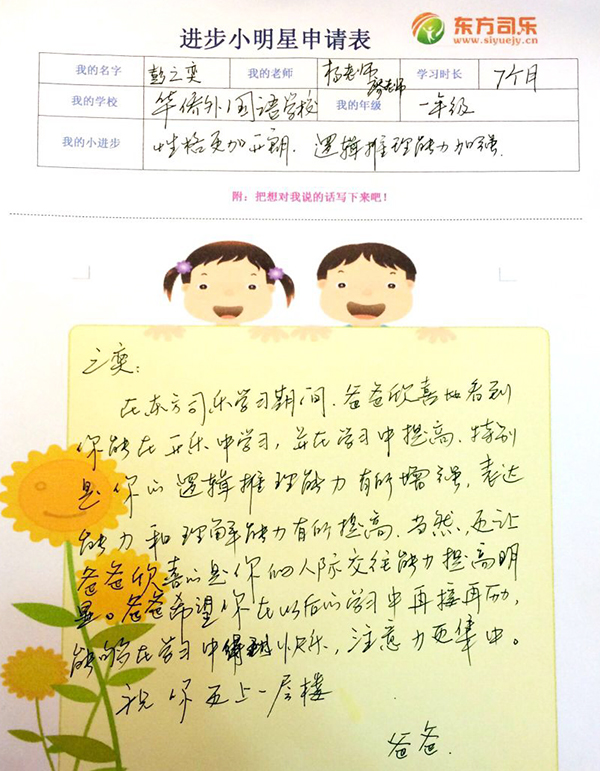 东方司乐
www.siyuejy.cn
进步小明星申请表
我的名字 彭之奕 我的老师 杨老师 廖老师 学习时长 7个月
我的学校 华侨外国语学校 我的年级 一年级
我的小进步 性格更加开朗.逻辑推理能力加强.
附：把想对我说的话写下来吧！
之奕：
在东方司乐学习期间.爸爸欣喜地看到
你能在开乐中学习,并在学习中提高.特别
是你的逻辑推理能力有所增强,表达
能力和理解能力有所提高.当然,还让
爸爸欣喜的是你的人际交往能力提高明
显。爸爸希望你在以后的学习中再接再励,
能够在学习中得到快乐,注意力更集中。
祝你更上一层楼
爸爸.